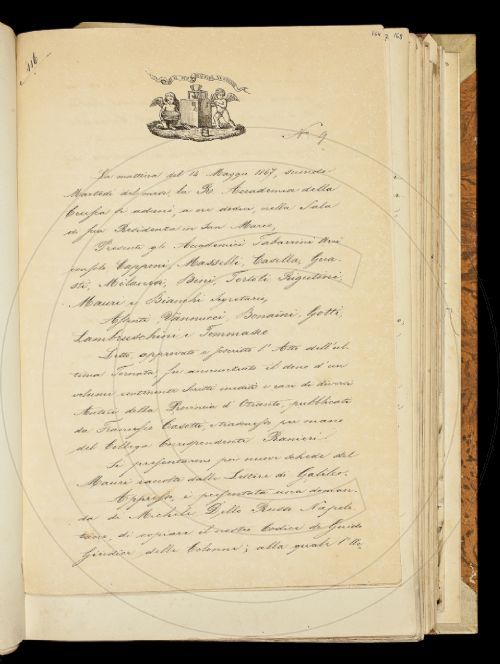 116
164 7 168
N. 9
La mattina del 14 Maggio 1867, secondo
Martedì del mese la R. Accademia della
Crusca si adunò, a ore dodici, nella Sala
di sua Residenza in San Marco,
Presenti gli Accademici Tabarrini Arci
consolo Capponi, Masselli, Casella, Gua-
sti, Milanesi, Bini, Tortoli Rigutini,
Mauri e Bianchi Segretario,
Assenti Vannucci Bonaini, Gotti,
Lambruschini e Tommaseo
Letto, approvato e soscritto l'Atto dell'ul-
tima Tornata fu annunziato il dono d'un
volume contenente Scritti inediti e rari di diversi
Autori della Provincia d'Otranto, pubblicato
da Francesco Casotti, trasmesso per mano
del Collega Corrispondente Ranieri.
Si presentarono poi nuove schede del
Mauri raccolte dalle Lettere di Galileo.
Appresso, è presentata una doman-
da di Michele Dello Russo Napole
tano, di copiare il nostro Codice di Guido
Giudice delle Colonne; alla quale l'Ac